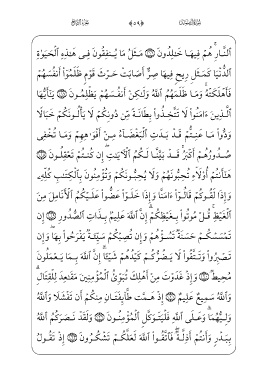 ٱلنَّارِ هُمْ فِيهَا خَٰلِدُونَ مَثَلُ مَا يُنفِقُونَ فِى هَٰذِهِ ٱلْحَيَوٰةِ
ٱلدُّنْيَا كَمَثَلِ رِيحٍ فِيهَا صِرٌّ أَصَابَتْ حَرْثَ قَوْمٍ ظَلَمُوٓا۟ أَنفُسَهُمْ
فَأَهْلَكَتْهُ وَمَا ظَلَمَهُمُ ٱللَّهُ وَلَٰكِنْ أَنفُسَهُمْ يَظْلِمُونَ يَٰٓأَيُّهَا
ٱلَّذِينَ ءَامَنُوا۟ لَا تَتَّخِذُوا۟ بِطَانَةً مِّن دُونِكُمْ لَا يَأْلُونَكُمْ خَبَالًا
وَدُّوا۟ مَا عَنِتُّمْ قَدْ بَدَتِ ٱلْبَغْضَآءُ مِنْ أَفْوَٰهِهِمْ وَمَا تُخْفِى
صُدُورُهُمْ أَكْبَرُ قَدْ بَيَّنَّا لَكُمُ ٱلْءَايَٰتِ إِن كُنتُمْ تَعْقِلُونَ
هَٰٓأَنتُمْ أُو۟لَآءِ تُحِبُّونَهُمْ وَلَا يُحِبُّونَكُمْ وَتُؤْمِنُونَ بِٱلْكِتَٰبِ كُلِّهِۦ
وَإِذَا لَقُوكُمْ قَالُوٓا۟ ءَامَنَّا وَإِذَا خَلَوْا۟ عَضُّوا۟ عَلَيْكُمُ ٱلْأَنَامِلَ مِنَ
ٱلْغَيْظِ قُلْ مُوتُوا۟ بِغَيْظِكُمْ إِنَّ ٱللَّهَ عَلِيمٌۢ بِذَاتِ ٱلصُّدُورِ إِن
تَمْسَسْكُمْ حَسَنَةٌ تَسُؤْهُمْ وَإِن تُصِبْكُمْ سَيِّئَةٌ يَفْرَحُوا۟ بِهَا وَإِن
تَصْبِرُوا۟ وَتَتَّقُوا۟ لَا يَضُرُّكُمْ كَيْدُهُمْ شَيْـًٔا إِنَّ ٱللَّهَ بِمَا يَعْمَلُونَ
مُحِيطٌ وَإِذْ غَدَوْتَ مِنْ أَهْلِكَ تُبَوِّئُ ٱلْمُؤْمِنِينَ مَقَٰعِدَ لِلْقِتَالِ
وَٱللَّهُ سَمِيعٌ عَلِيمٌ إِذْ هَمَّت طَّآئِفَتَانِ مِنكُمْ أَن تَفْشَلَا وَٱللَّهُ
وَلِيُّهُمَا وَعَلَى ٱللَّهِ فَلْيَتَوَكَّلِ ٱلْمُؤْمِنُونَ وَلَقَدْ نَصَرَكُمُ ٱللَّهُ
بِبَدْرٍ وَأَنتُمْ أَذِلَّةٌ فَٱتَّقُوا۟ ٱللَّهَ لَعَلَّكُمْ تَشْكُرُونَ إِذْ تَقُولُ